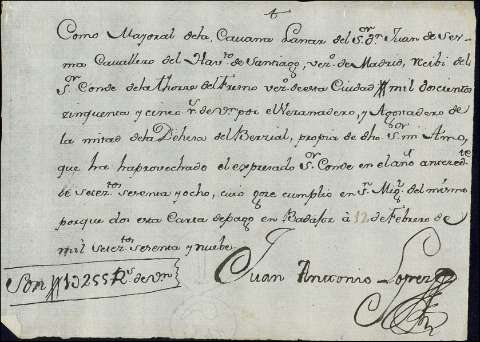 Como Mayoral de la Cavana Lanar del Sor. Dn. Juan de Ser-
ma Cavallero del Havito. de Santiago, vezo. de Madrid, recibi del
Sor. Conde de la Thorre del Fresno vezo. de esta Ciudad mil doscientos
zinquenta y cinco rs. de vn. por el Veranadero, y Agostadero de
la mitad de la Dehesa del Berrial, propia de dho. Sor. mi Amo,
que ha haprovechado el expresado Sor. Conde en el año anteced
te de setezos. sesenta y ocho, cuio goze cumplio en Sn. Migl. del mismo
porque doi esta Carta de pago en Badajoz à 12 de Febrero de
mil setezos. sesenta y nuebe
Son 1255 Rs. de vn.
Juan Anttonio Lopez